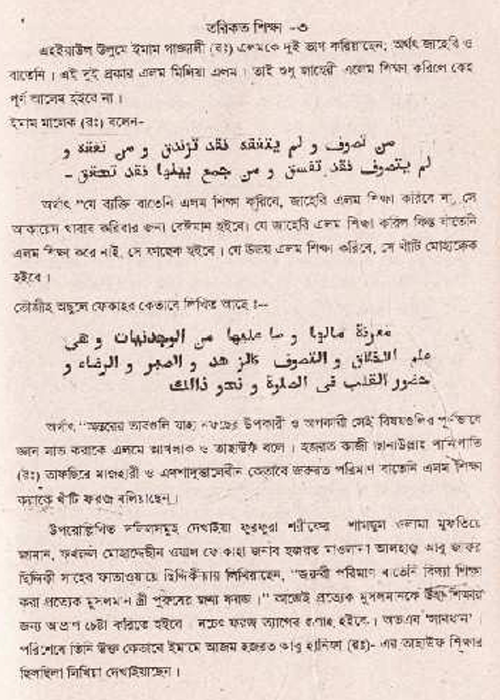 তরিকত শিক্ষা -৩
এহইয়াউল উলুমে ইমাম গাজ্জালী (রঃ) এলমকে দুই ভাগ করিয়াছেন; অর্থৎ জাহেরি ও
বাতেনি । এই দুই প্রকার এলম মিলিয়া এলম । তাই শুধু জাহেরী এলেম শিক্ষা করিলে কেহ
পূর্ণ আলেম হইবে না ।
ইমাম মালেক (রঃ) বলেন-
من تصوف و لم يتفقه فقد تزندق و من تفقه و
لم يتصوف فقد تفسق و من جمع بينهما فقد تحقق -
অর্থাৎ "যে ব্যক্তি বাতেনি এলম শিক্ষা করিবে, জাহেরি এলম শিক্ষা করিবে না, সে
আকায়েদ খারাব করিবার জন্য বেঈমান হইবে। যে জাহেরি এলম শিক্ষা করিল কিন্তু বাতেনি
এলম শিক্ষা করে নাই, সে ফাছেক হইবে । যে উভয় এলম শিক্ষা করিবে, সে খাঁটি মোহাক্কেক
হইবে ।
তৌজীহ অছুলে ফেকাহর কেতাবে লিখিত আছে ঃ--
معرفة مالها و ما عليها من الوجدنيات و هى
علم الاخلاق و التصوف كالز هد و الصبر و الرضاء و
حضور القلب فى الصلوة و نحو ذالك
অর্থাৎ "অন্তরের ভাবগুলি যাহা নফছের উপকারী ও অপকারী সেই বিষয়গুলির পূর্ণভাবে
জ্ঞান লাভ করাকে এলমে আখলাক ও তাছাউফ বলে । হজরত কাজী ছানাউল্লাহ পানিপাতি
(রঃ) তাফছিরে মাজহারী ও এরশাদুত্তালেবীন কেতাবে জরুরত পরিমাণ বাতেনি এলম শিক্ষা
করাকে খাঁটি ফরজ বলিয়াছেন ।
উপরোল্লিখিত দলিলসমূহ দেখাইয়া ফুরফুরা শরীফের শামছুল ওলামা মুফতিয়ে
জামান, ফখরুল মোহাদ্দেছীন ওয়াল ফোকাহা জনাব হজরত মাওলানা আলহাজ্ব আবু জাফর
ছিদ্দিকী সাহেব ফাতাওয়ায়ে ছিদ্দিকীয়ায় লিখিয়াছেন, "জরুরী পরিমাণ বাতেনি বিদ্যা শিক্ষা
করা প্রত্যেক মুসলমান স্ত্রী পুরুষের জন্য ফরজ ।" কাজেই প্রত্যেক মুসলমানকে উক্ত শিক্ষার
জন্য অপ্রাণ চেষ্টা করিতে হইবে । নচেৎ ফরজ ত্যাগের গুনাহ হইবে । অতএব "সাবধান" ।
পরিশেষে তিনি উক্ত কেতাবে ইমামে আজম হজরত আবু হানিফা (রঃ)- এর তাছাউফ শিক্ষার
ছিলছিলা লিখিয়া দেখাইয়াছেন ।